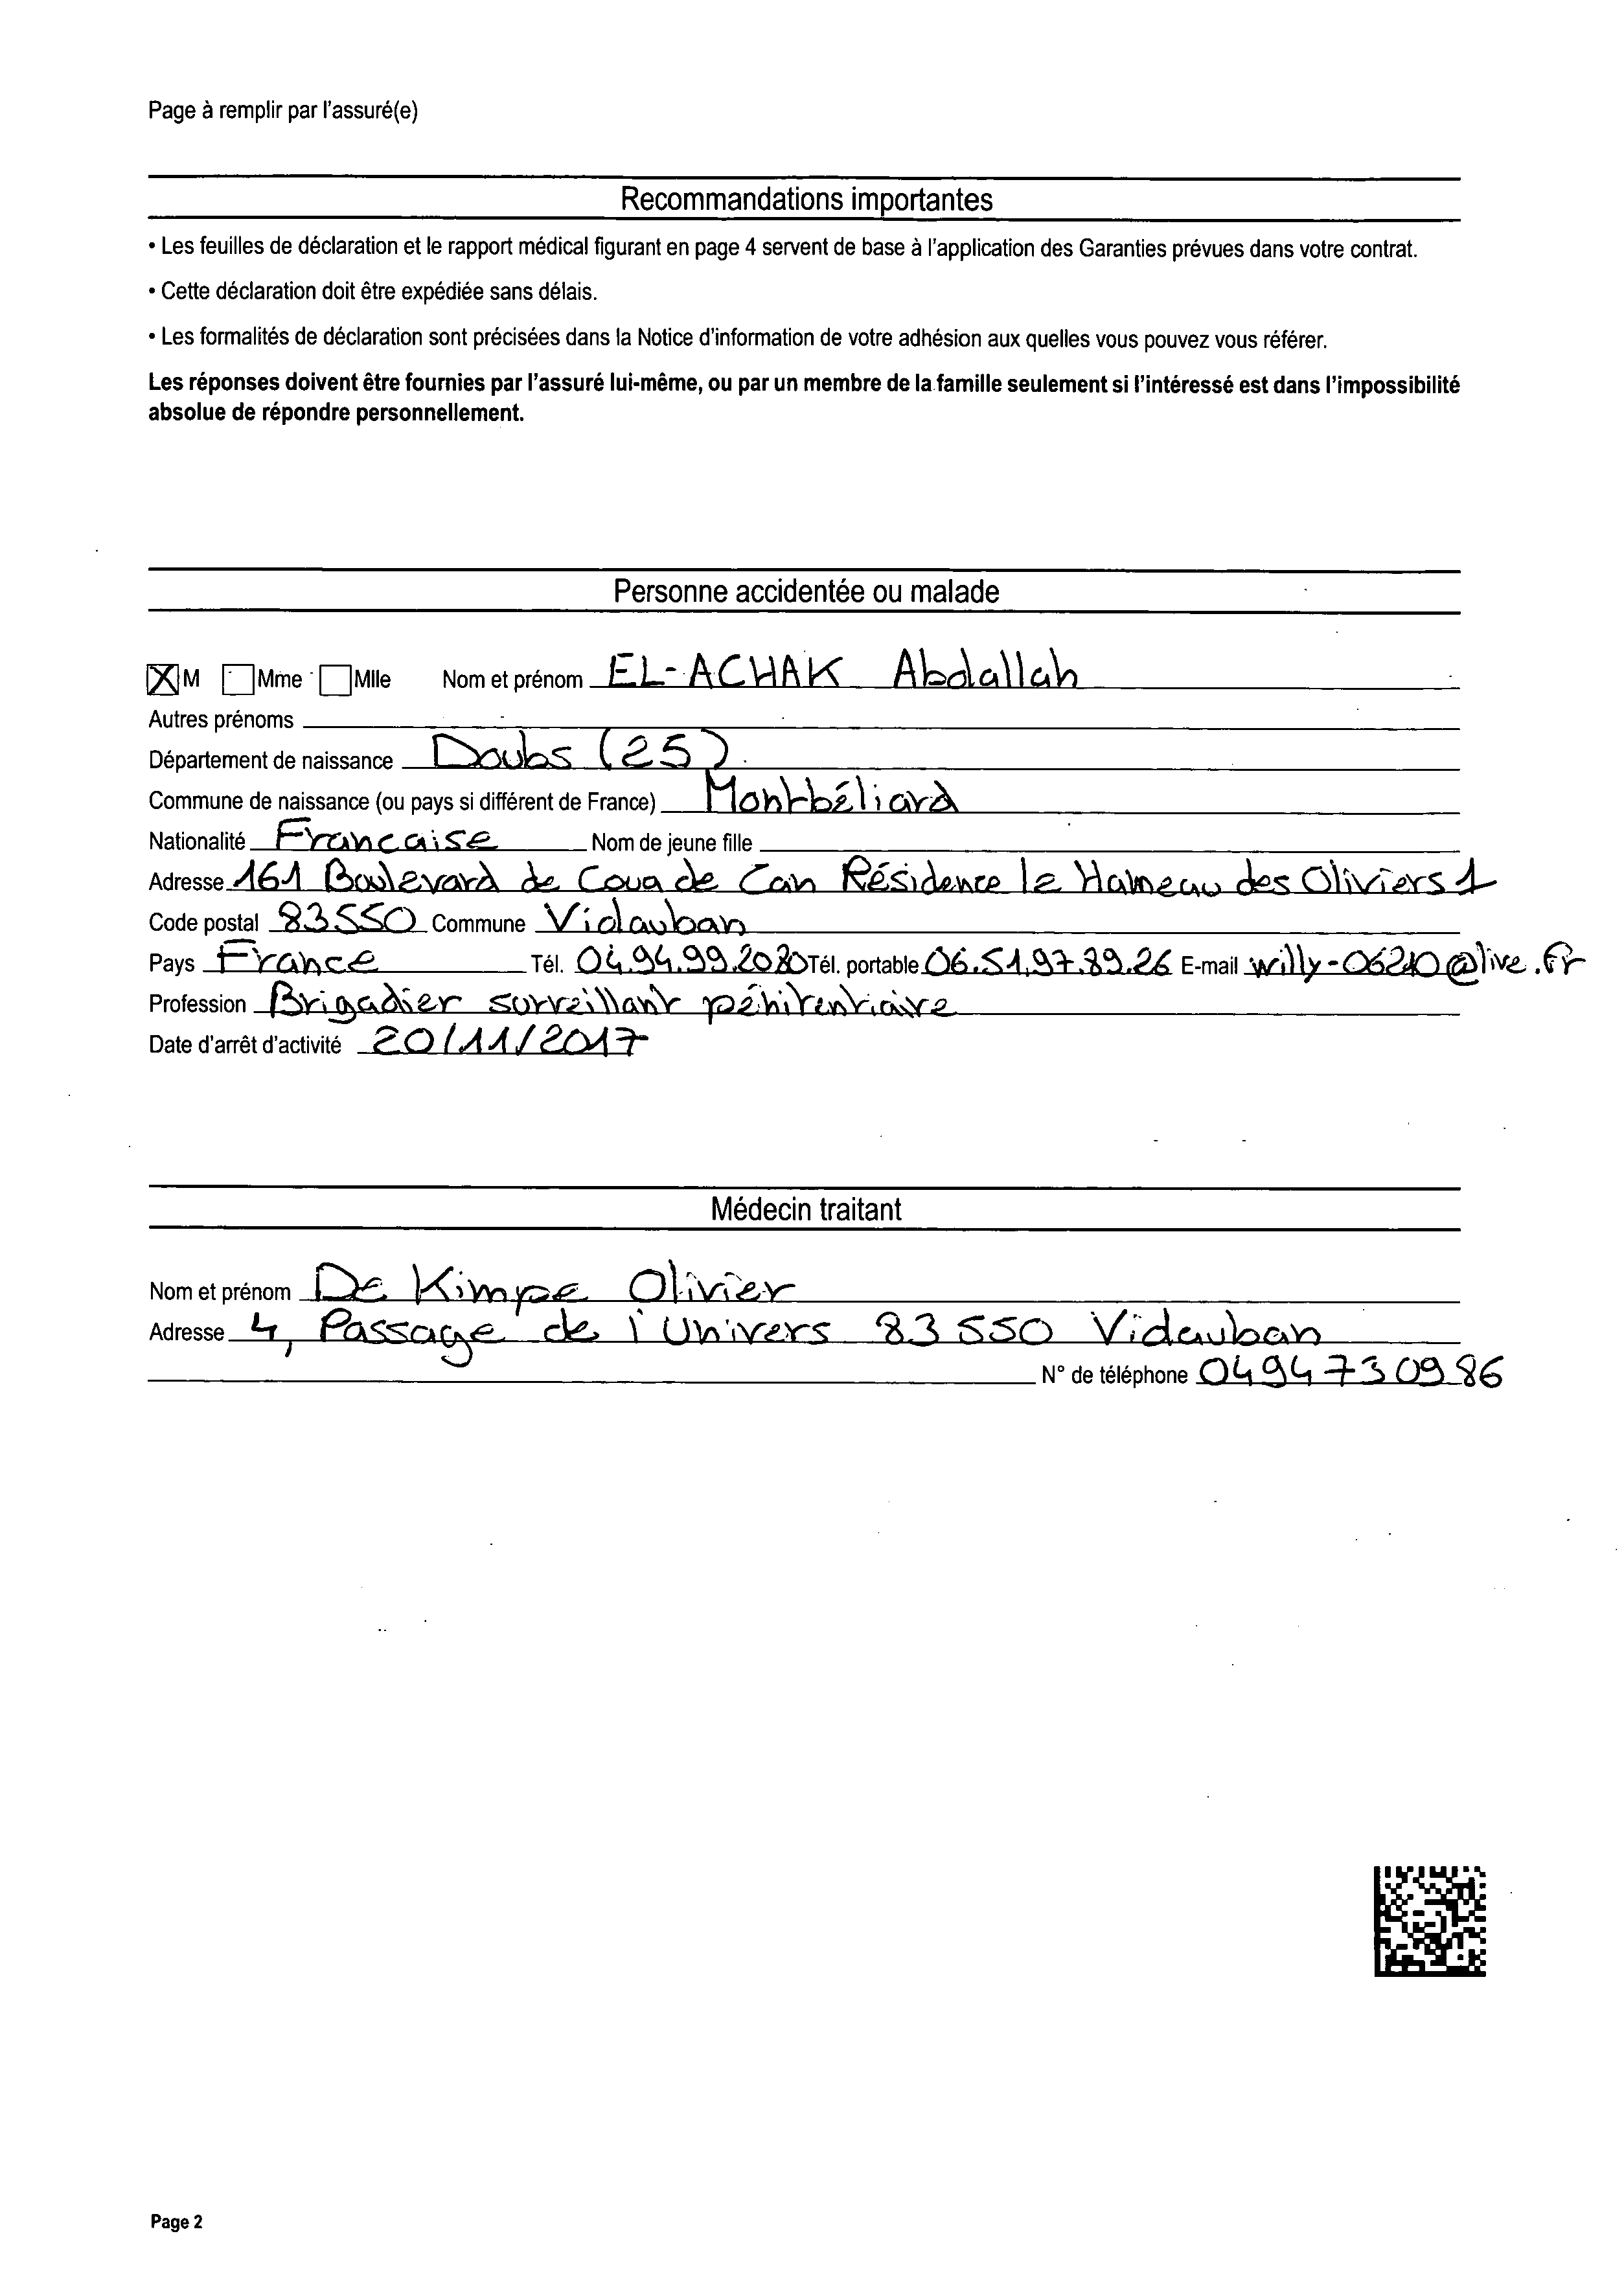 Page à remplir par l'assuré(e)
Recommandations importantes
• Les feuilles de déclaration et le rapport médical figurant en page 4 servent de base à l'application des Garanties prévues dans votre contrat.
• Cette déclaration doit être expédiée sans délais.
• Les formalités de déclaration sont précisées dans la Notice d'information de votre adhésion aux quelles vous pouvez vous référer.
Les réponses doivent être fournies par l'assuré lui-même, ou par un membre de la famille seulement si l'intéressé est dans l'impossibilité
absolue de répondre personnellement.
Personne accidentée ou malade
M Mme Mlle Nom et prénom EL-ACHAK Abdallah
Autres prénoms
Département de naissance Doubs (25)
Commune de naissance (ou pays si différent de France) Montbéliard
Nationalité Francaise Nom de jeune fille
Adresse 161 Boulevard de Coua de Can Résidence le Hameau des Oliviers 1
Code postal 83550 Commune Vidauban
Pays France Tél. 04.94.99.2080 Tél. portable 06.51.97.89.26 E-mail willy-06210@live.fr
Profession Brigadier surveillant pénitentiaire
Date d'arrêt d'activité 20/11/2017
Médecin traitant
Nom et prénom De Kimpe Olivier
Adresse 4, Passage de l'Univers 83550 Vidauban
N° de téléphone 0494730986
Page 2